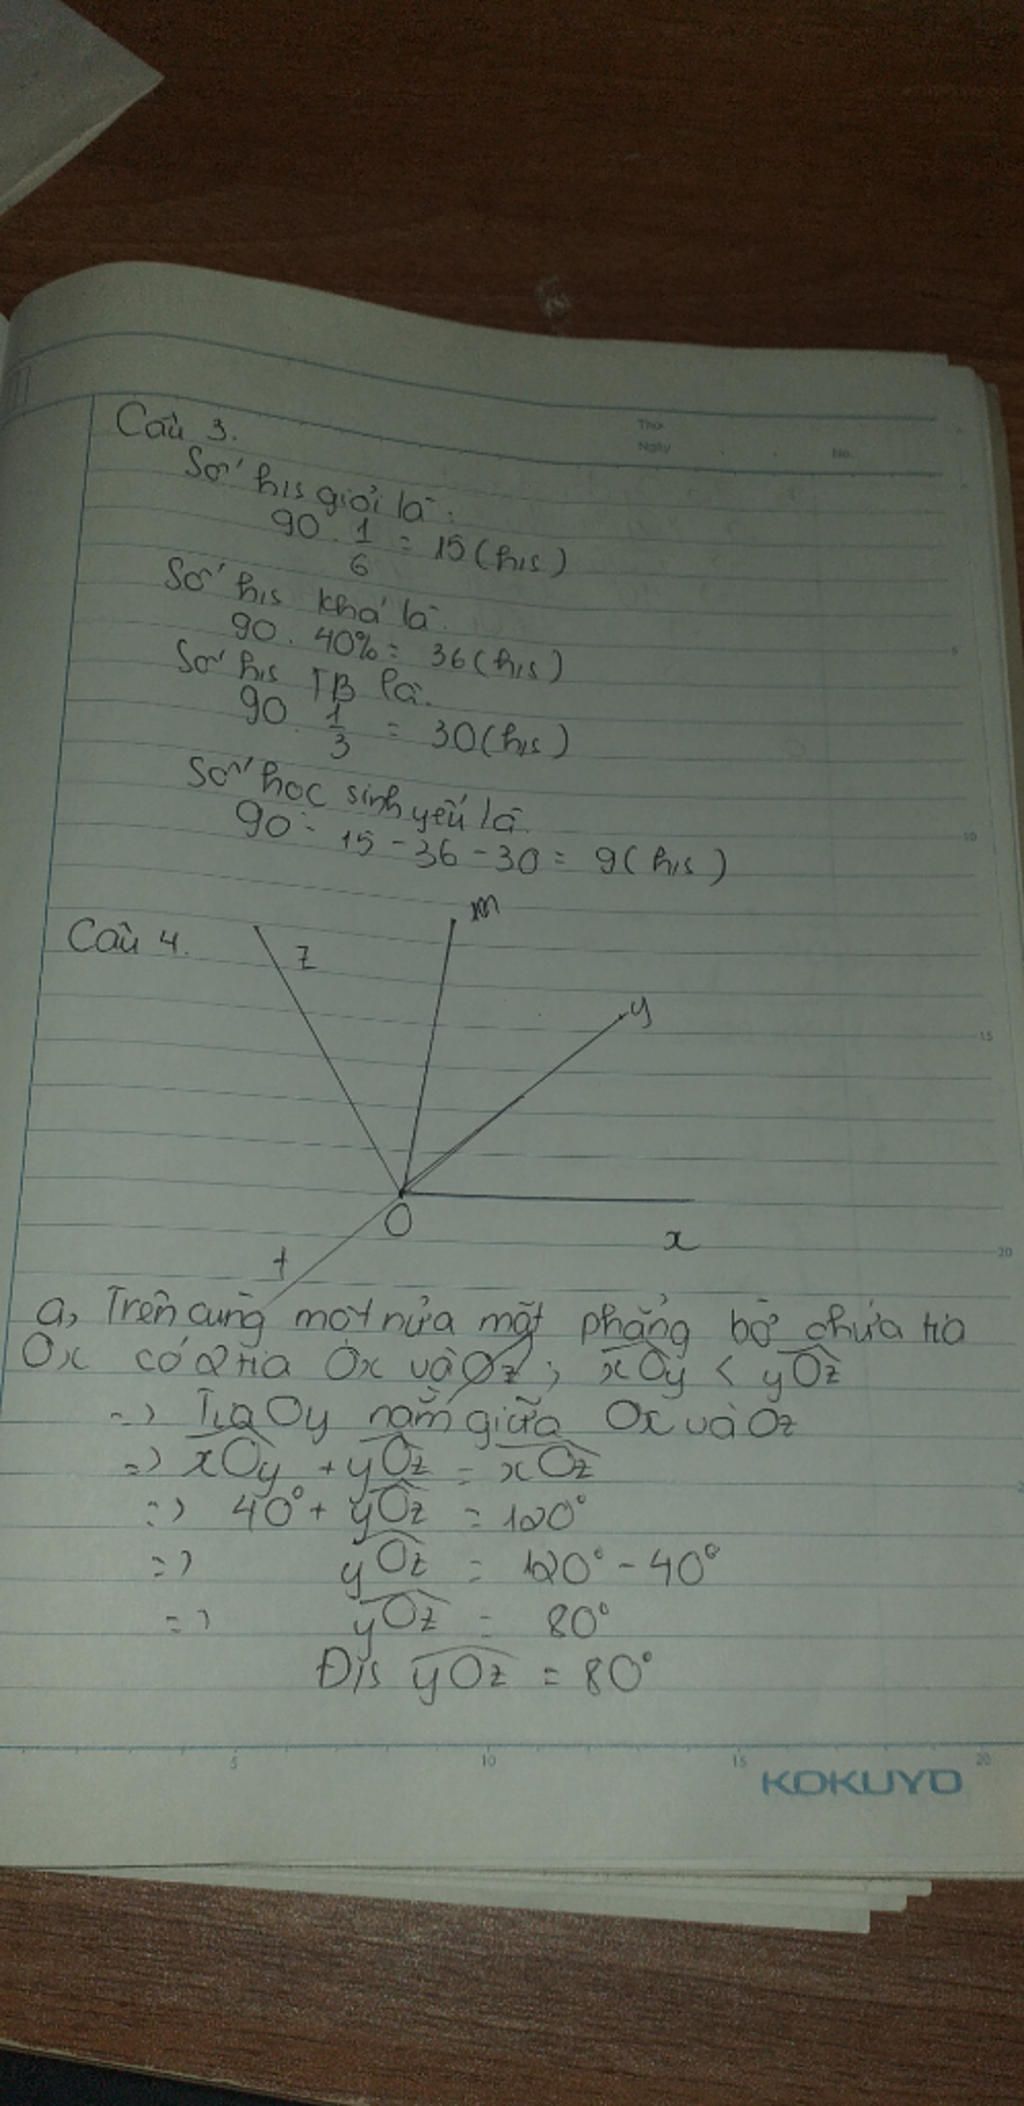 Thứ
Ngày No.
Câu 3.
Số h/s giỏi là:
90 . 1/6 = 15 (h/s)
Số h/s khá là.
90 . 40% = 36 (h/s)
Số h/s TB là.
90 . 1/3 = 30 (h/s)
Số học sinh yếu là.
90 - 15 - 36 - 30 = 9 (h/s)
Câu 4.
z
m
y
O
x
t
a, Trên cùng một nửa mặt phẳng bờ chứa tia
Ox có 2 tia Ox và Oz ; xOy < yOz
=> Tia Oy nằm giữa Ox và Oz
=> xOy + yOz = xOz
=> 40° + yOz = 120°
=> yOz = 120° - 40°
=> yOz = 80°
Đ/s yOz = 80°
5 10 15 20
KOKUYO
5
10
15
20